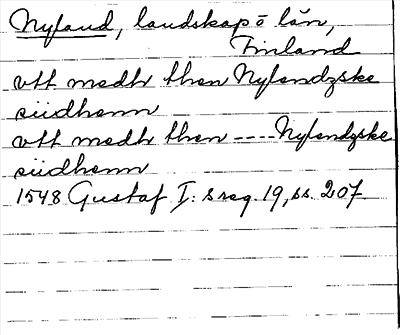 Nyland, landskap o län,
Finland
vtt medh then Nylendzske
siidhenn
vtt medh then ---- Nylendzske
siidhenn
1548 Gustaf I: s reg. 19, ss. 207